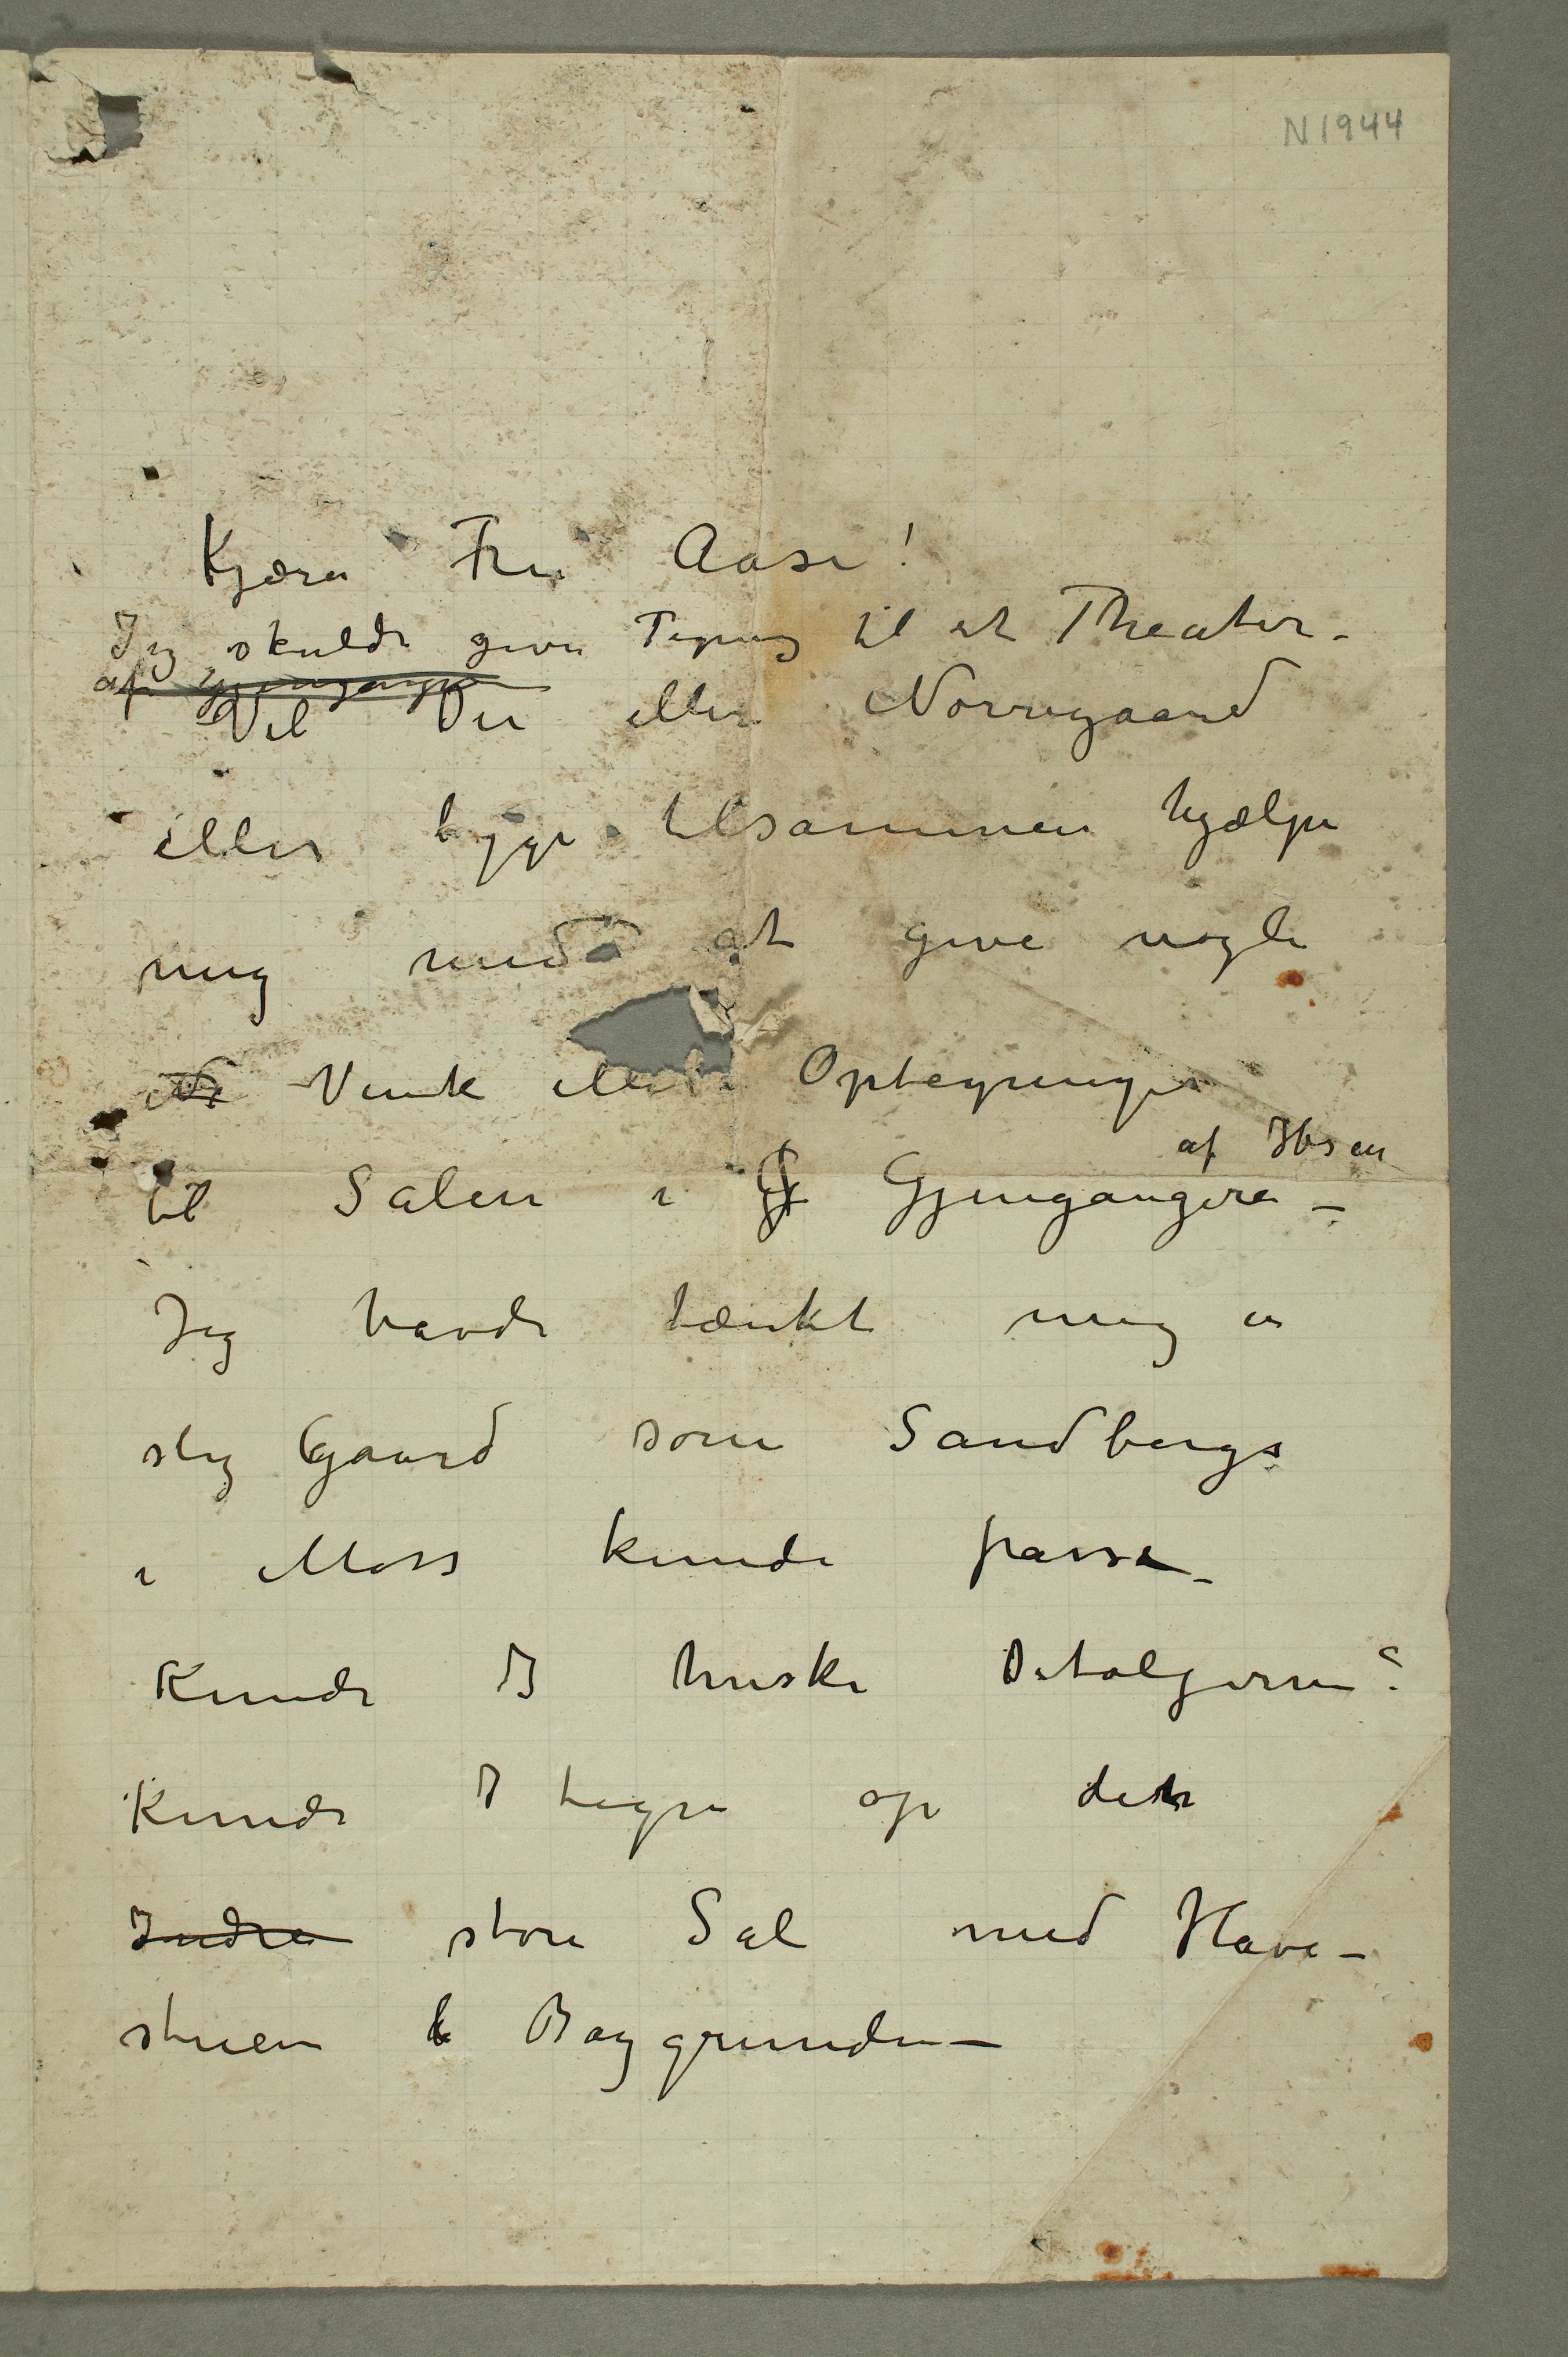 N 1944
Kjære Fru Aase!
Jeg skulde give Tegning til et Theater.
af Gjengangere
Vil Du eller Nørregaard
eller begge tilsammen hjælpe
mig med at give nogle
Vink eller Optegninger
til Salen i Gj Gjengangere –
af Ibsen
Jeg havde tænkt mig en
slig Gaard som Sandbergs
i Moss kunde passe –
Kunde I huske Detaljerne?
Kunde I tegne op den
Indre store Sal med Have–
stuen i Baggrunden –